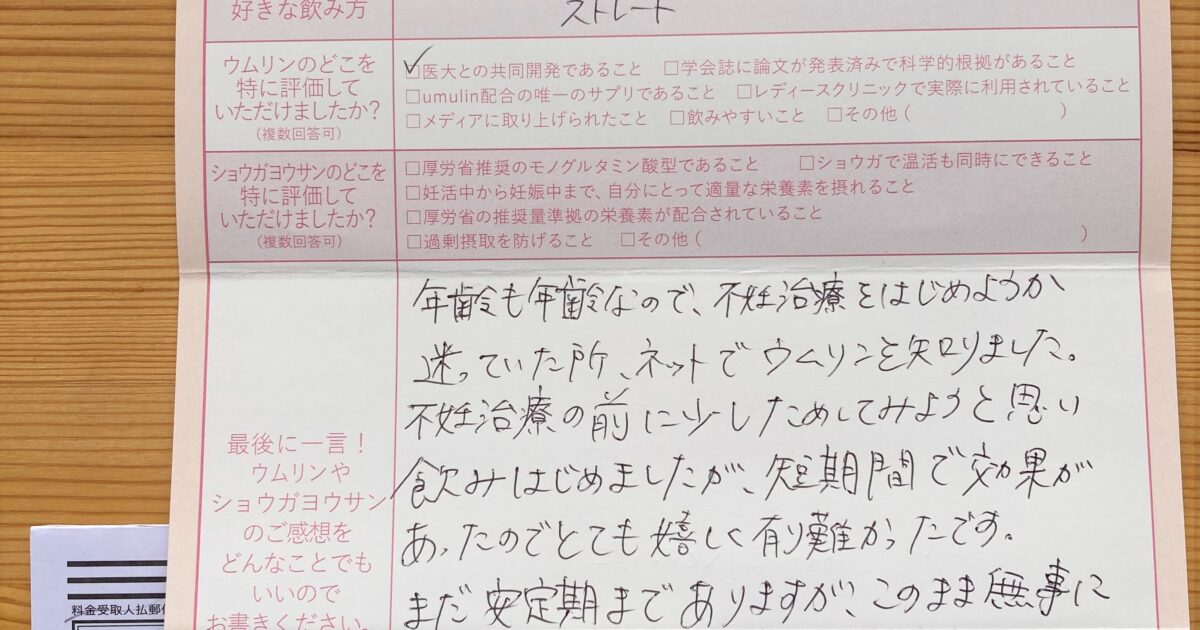 好きな飲み方
ストレート
ウムリンのどこを
特に評価して
いただけましたか?
(複数回答可)
☑医大との共同開発であること □学会誌に論文が発表済みで科学的根拠があること
□umulin配合の唯一のサプリであること □レディースクリニックで実際に利用されていること
□メディアに取り上げられたこと □飲みやすいこと □その他 ( )
ショウガヨウサンのどこを
特に評価して
いただけましたか?
(複数回答可)
□厚労省推奨のモノグルタミン酸型であること □ショウガで温活も同時にできること
□妊活中から妊娠中まで、自分にとって適量な栄養素を摂れること
□厚労省の推奨量準拠の栄養素が配合されていること
□過剰摂取を防げること □その他 ( )
最後に一言!
ウムリンや
ショウガヨウサン
のご感想を
どんなことでも
いいので
お書きください。
年齢も年齢なので、不妊治療をはじめようか
迷っていた所、ネットでウムリンを知りました。
不妊治療の前に少しためしてみようと思い
飲みはじめましたが、短期間で効果が
あったのでとても嬉しく有り難かったです。
まだ安定期までありますが、このまま無事に
料金受取人払郵便